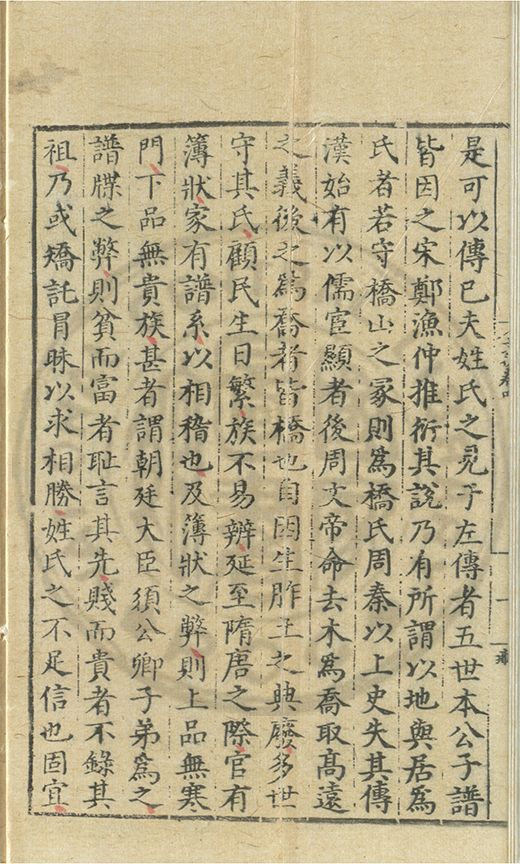 是可以傳已夫姓氏之見于左傳者五世本公子譜
皆因之宋鄭漁仲推衍其說乃有所謂以地與居爲
氏者若守橋山之冢則爲橋氏周秦以上史失其傳
漢始有以儒宦顯者後周文帝命去木爲喬取高遠
之義後之爲喬者皆橋也自因生胙土之典廢多世
守其氏顧民生日繁族不易辨延至隋唐之際官有
簿狀家有譜系以相稽也及簿狀之弊則上品無寒
門下品無貴族甚者謂朝廷大臣須公卿子弟爲之
譜牒之弊則貧而富者耻言其先賤而貴者不錄其
祖乃或矯託冒昧以求相勝姓氏之不足信也固宜